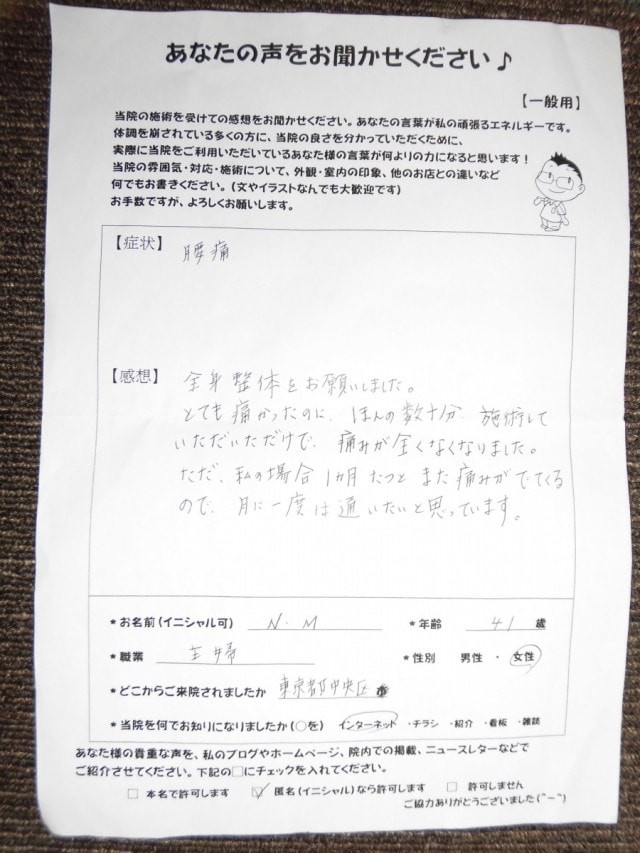 あなたの声をお聞かせください♪
【一般用】
当院の施術を受けての感想をお聞かせください。あなたの言葉が私の頑張るエネルギーです。
体調を崩されている多くの方に、当院の良さを分かっていただくために、
実際に当院をご利用いただいているあなた様の言葉が何よりの力になると思います!
当院の雰囲気・対応・施術について、外観・室内の印象、他のお店との違いなど
何でもお書きください。(文やイラストなんでも大歓迎です)
お手数ですが、よろしくお願いします。
【症状】 腰痛
【感想】 全身整体をお願いしました。
とても痛かったのに、ほんの数十分、施術して
いただいただけで、痛みが全くなくなりました。
ただ、私の場合1カ月たつとまた痛みがでてくる
ので、月に一度は通いたいと思っています。
* お名前(イニシャル可) N.M * 年齢 41 歳
* 職業 主婦 * 性別 男性 ・ 女性
* どこからご来院されましたか 東京都中央区
* 当院を何でお知りになりましたか(○を) インターネット ・チラシ ・紹介 ・看板 ・雑誌
あなた様の貴重な声を、私のブログやホームページ、院内での掲載、ニュースレターなどで
ご紹介させてください。下記の□にチェックを入れてください。
□ 本名で許可します ☑ 匿名(イニシャル)なら許可します □ 許可しません
ご協力ありがとうございました(^ー^)